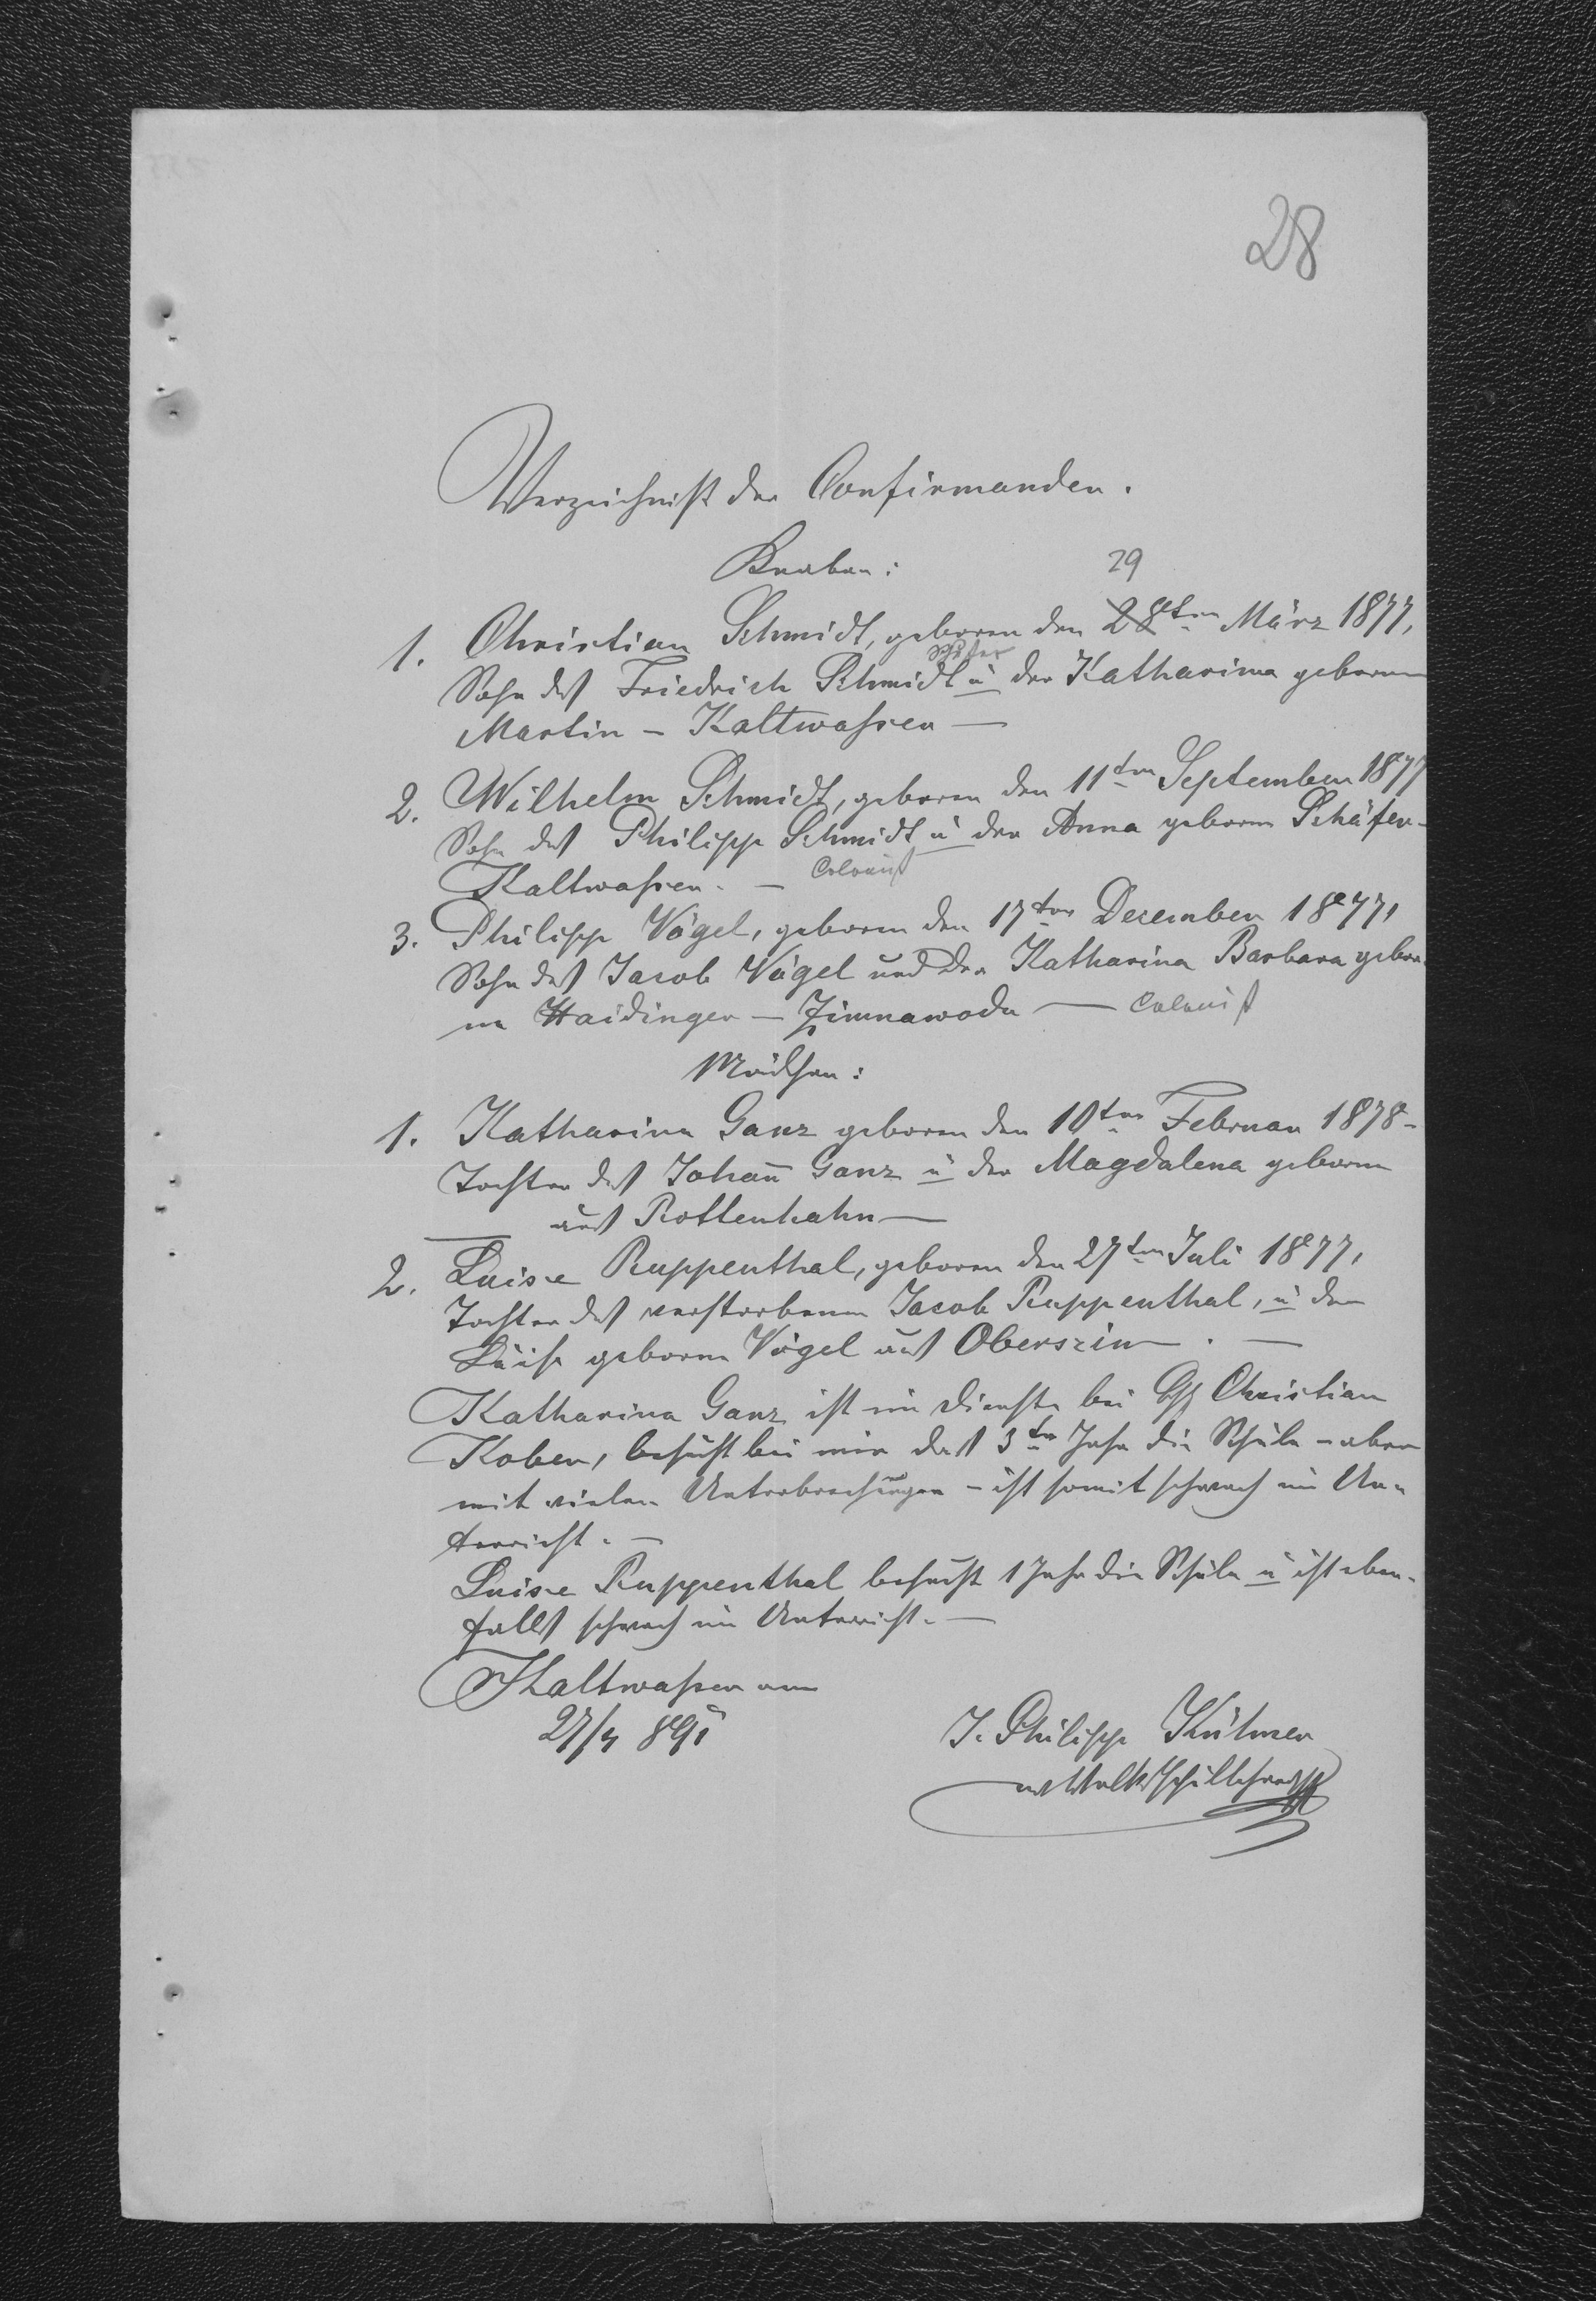 28
Verzeichniß der Confirmanden.
Knaben:
29
1. Christian Schmidt, geboren den 28ten März 1877,
Schuster
Sohn des Friedrich Schmidt u der Katharina gebornen
Martin - Kaltwasser —
2. Wilhelm Schmidt, geboren den 11ten September 1877
Sohn des Philipp Schmidt u der Anna geborne Schäfer -
Kaltwasser. — Colonist
3. Philipp Vögel, geboren den 17ten Dezember 1877,
Sohn des Jacob Vögel und der Katharina Barbara gebor-
ne Haidinger — Zimnawoda — Colonist
Mädchen:
1. Katharina Ganz geboren den 10ten Februar 1878 -
Tochter des Johan̄ Ganz u der Magdalena geborne
aus Rottenhahn —
2. Luise Ruppenthal, geboren den 27ten Juli 1877,
Tochter des verstorbenen Jacob Ruppenthal, u der
Luise geborne Vögel aus Oberszin . —
Katharina Ganz ist im Dienste bei Christian
Kober, besucht bei mir das 3te Jahr die Schule - aber
mit vielen Unterbrechungen - ist somit schwach im Un-
terricht. —
Luise Ruppenthal besucht 1 Jahr die Schule u ist eben-
falls schwach im Unterricht. —
Kaltwasser am
27/4 891
J. Philipp Kützner
Volksschullehrer